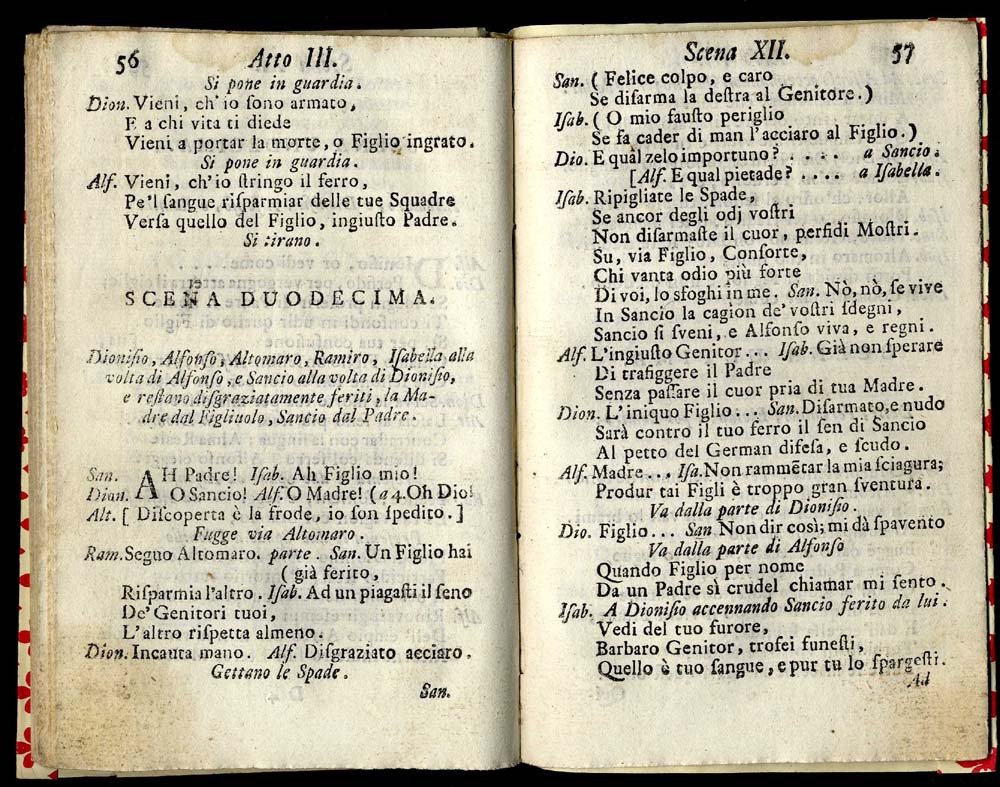 56 Atto III.
Si pone in guardia.
Dion. Vieni, ch'io ſono armato,
E a chi vita ti diede
Vieni a portar la morte, o Figlio ingrato.
Si pone in guardia.
Alf. Vieni, ch'io ſtringo il ferro,
Pe'l ſangue riſparmiar delle tue Squadre
Verſa quello del Figlio, ingiuſto Padre.
Si tirano.
SCENA DUODECIMA.
Dioniſio, Alfonſo, Altomaro, Ramiro, Iſabella alla
volta di Alfonſo, e Sancio alla volta di Dioniſio,
e reſtano diſgraziatamente feriti, la Ma-
dre dal Figliuolo, Sancio dal Padre.
San. AH Padre! Iſab. Ah Figlio mio!
Dion. O Sancio! Alf. O Madre! (a 4. Oh Dio!
Alt. [ Diſcoperta è la frode, io ſon ſpedito. ]
Fugge via Altomaro.
Ram. Seguo Altomaro. parte. San. Un Figlio hai
( già ferito,
Riſparmia l'altro. Iſab. Ad un piagaſti il ſeno
De' Genitori tuoi,
L'altro riſpetta almeno.
Dion. Incauta mano. Alf. Diſgraziato acciaro.
Gettano le Spade.
San.
Scena XII. 57
San. ( Felice colpo, e caro
Se diſarma la deſtra al Genitore.)
Iſab. ( O mio fauſto periglio
Se fa cader di man l'acciaro al Figlio.)
Dio. E quàl zelo importuno? . . . . a Sancio.
[Alf. E qual pietade? . . . . a Iſabella.
Iſab. Ripigliate le Spade,
Se ancor degli odj voſtri
Non diſarmaſte il cuor, perfidi Moſtri.
Su, via Figlio, Conſorte,
Chi vanta odio più forte
Di voi, lo sfoghi in me. San. Nò, nò, ſe vive
In Sancio la cagion de' voſtri ſdegni,
Sancio ſi ſveni, e Alfonſo viva, e regni.
Alf. L'ingiuſto Genitor... Iſab. Già non ſperare
Di trafiggere il Padre
Senza paſſare il cuor pria di tua Madre.
Dion. L'iniquo Figlio... San. Diſarmato, e nudo
Sarà contro il tuo ferro il ſen di Sancio
Al petto del German difeſa, e ſcudo.
Alf. Madre... Iſa. Non rammẽtar la mia ſciagura;
Produr tai Figli è troppo gran ſventura.
Va dalla parte di Dioniſio.
Dio. Figlio... San Non dir così; mi dà ſpavento
Va dalla parte di Alfonſo
Quando Figlio per nome
Da un Padre sì crudel chiamar mi ſento.
Iſab. A Dioniſio accennando Sancio ferito da lui.
Vedi del tuo furore,
Barbaro Genitor, trofei funeſti,
Quello è tuo ſangue, e pur tu lo ſpargeſti.
Ad